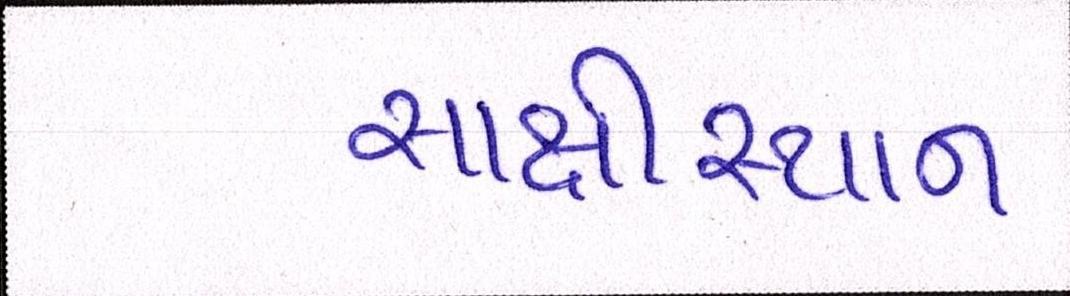 સાક્ષીસ્થાન